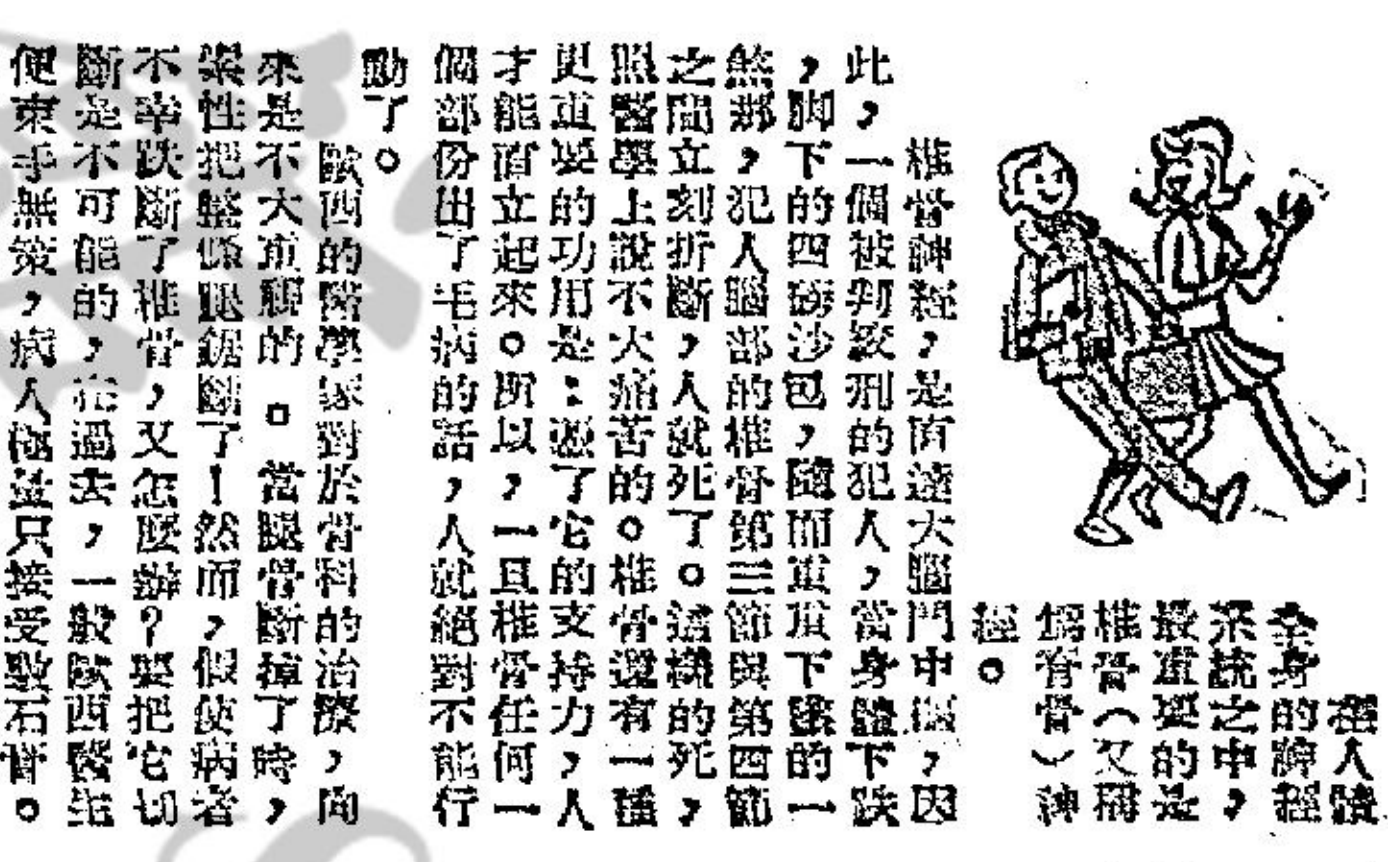 在人體
全身的神經
系統之中,
最重要的是
椎骨(又稱
脊骨)神
經。
椎骨神經,是直達大腦門中樞,因
此,一個被判絞刑的犯人,當身體下跌
,脚下的四磅沙包,隨而重重下墜的一
煞那,犯人腦部的椎骨第三節與第四節
之間立刻折斷,人就死了。這樣的死,
照醫學上說不大痛苦的。椎骨還有一種
更重要的功用是:憑了它的支持力,人
才能直立起來。所以,一旦椎骨任何一
個部份出了毛病的話,人就絕對不能行
動了。
歐西的醫學家對於骨科的治療,向
來是不大重視的。當腿骨斷掉了時,
索性把整條腿鋸斷了!然而,假使病者
不幸跌斷了椎骨,又怎麼辦?要把它切
斷是不可能的,在過去,一般歐西醫生
便束手無策,病人極益只接受敷石膏。